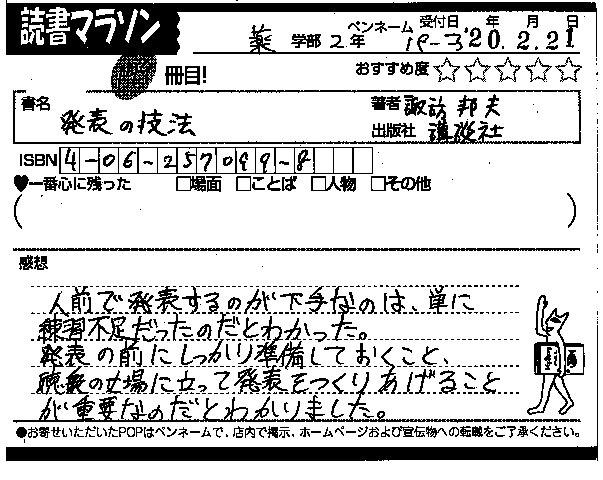 読書マラソン
冊目!
薬 学部 2年 ペンネーム 受付日 年 月 日
'20.2.21
おすすめ度 ☆☆☆☆☆
書名 発表の技法
著者 諏訪邦夫
出版社 講談社
ISBN 4-06-257099-8
♥一番心に残った □場面 □ことば □人物 □その他
( )
感想
人前で発表するのが下手なのは、単に
練習不足だったのだとわかった。
発表の前にしっかり準備しておくこと、
聴衆の立場に立って発表をつくりあげること
が重要なのだとわかりました。
●お寄せいただいたPOPはペンネームで、店内で掲示、ホームページおよび宣伝物への転載をご了承ください。